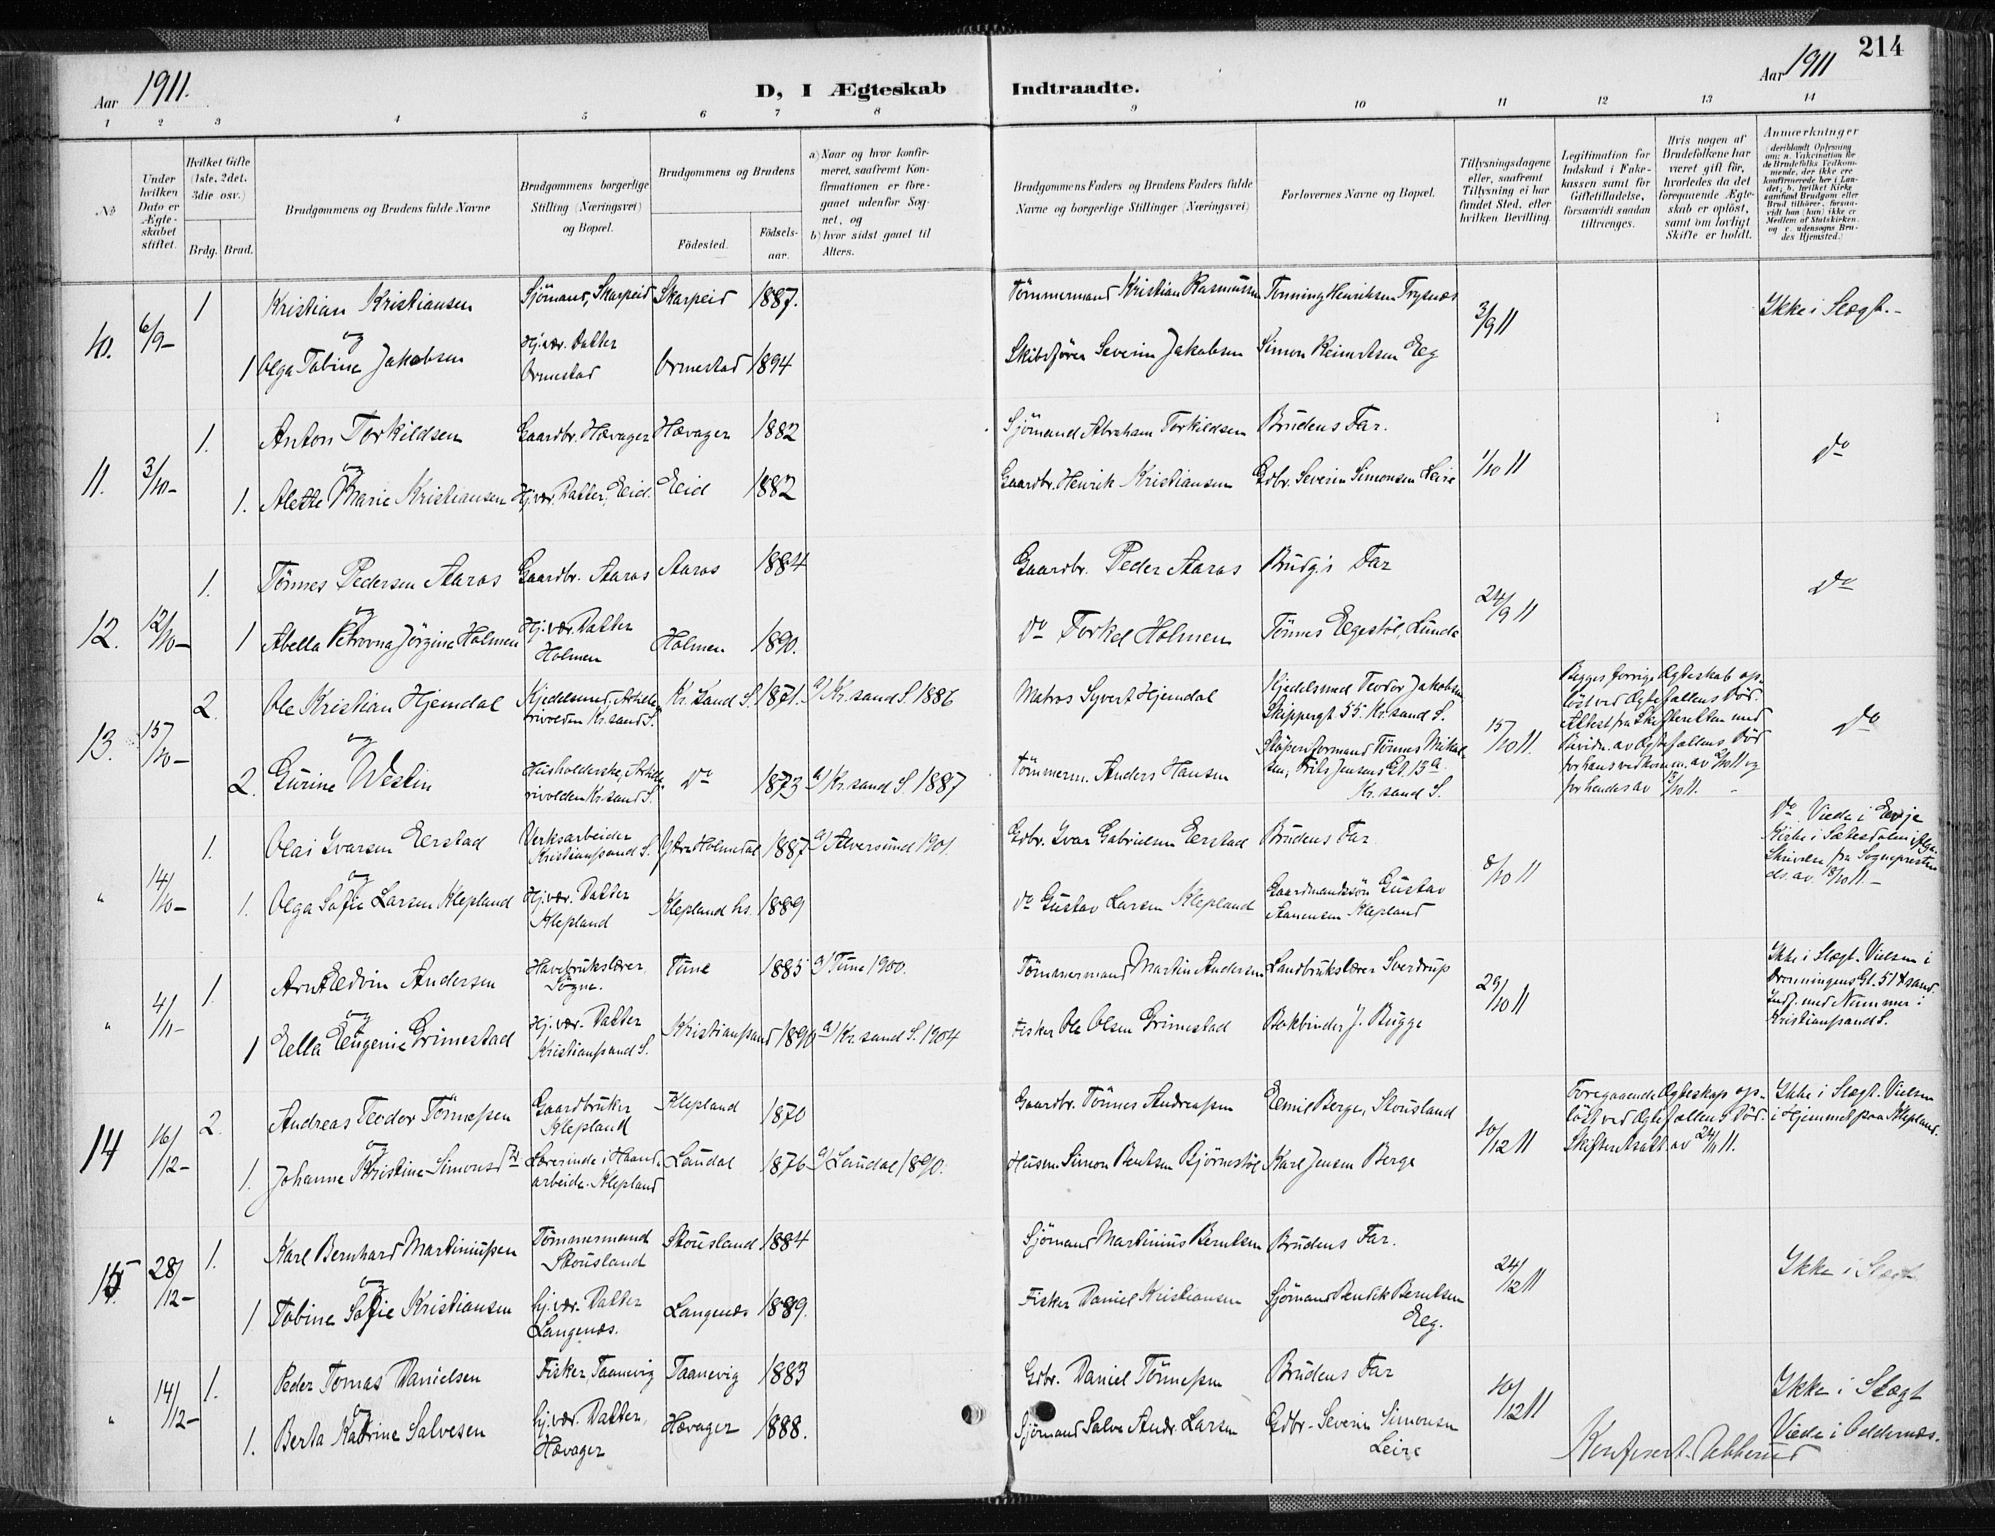 214
Aar 1911.
D, I Ægteskab Indtraadte.
Aar 1911
1 2 3 4 5 6 7 8 9 10 11 12 13 14
No
Under hvilken Dato er Ægteskabet stiftet.
Hvilket Gifte (1ste, 2det, 3die osv.)
Brdg. Brud.
Brudgommens og Brudens fulde Navne
Brudgommens borgerlige Stilling (Næringsvei) og Bopæl.
Brudgommens og Brudens
Fødested.
Fødselsaar.
a) Naar og hvor konfirmeret, saafremt Konfirmationen er foregaaet udenfor Sognet, og
b) hvor sidst gaaet til Alters.
Brudgommens Faders og Brudens Faders fulde Navne og borgerlige Stillinger (Næringsvei)
Forlovernes Navne og Bopæl.
Tillysningsdagene eller, saafremt Tillysning ei har fundet Sted, efter hvilken Bevilling.
Legitimation for Indskud i Enkekassen samt for Giftetilladelse, forsaavidt saadan tiltrænges.
Hvis nogen af Brudefolkene har været gift før, hvorledes da det foregaaende Ægteskab er opløst, samt om lovligt Skifte er holdt.
Anmærkninger (deriblandt Oplysning om: a. Vakcination for de Brudefolks Vedkommende, der ikke ere konfirmerede her i Landet; b. hvilket Kirkesamfund Brudgom eller Brud tilhører, forsaavidt han (hun) ikke er Medlem af Statskirken, og c. udensogns Brudes Hjemsted.)
10. 6/9- 1 Kristian Kristiansen Sjömand, Skarpeid Skarpeid 1887. Tømmermand Kristian Rasmussen Tønning Henriksen Trysnes 3/9 11 Ikke i Slægt.-
og
1 Olga Tobine Jakobsen Hj.vær. Datter Ormestad Ormestad 1894 Skibsfører Severin Jakobsen Simon Reinertsen Eeg
11. 3/10- 1. Anton Torkildsen Gaardbr. Hævager Hævager 1882 Sjömand Abraham Torkildsen Brudens Far. 1/10 11 do
og
1. Alette Marie Kristiansen Hj.vær. Datter, Eid. Eid 1882 Gaardbr. Henrik Kristiansen Gdbr. Severin Simonsen Leire
12. 12/10- 1. Tönnes Pedersen Aaros Gaardbr. Aaros Aaros 1884 Gaardbr. Peder Aaros Brudg's Far 24/9 11 do
og
1 Abella Petrovna Jörgine Holmen Hj.vær. Datter Holmen Holmen 1890. do Torkel Holmen Tönnes Egestöl, Lunde
13. 15/10- 2. Ole Kristian Hjemdal Kjedelsmed, Kr.sand S. Kr.sand S. 1871. a/ Kr.sand S. 1886 Matros Syvert Hjemdal Kjedelsmed Teodor Jakobsen Skippergt 55. Kr.sand S. 15/10 11. do
Begges forrige Ægteskab opløst ved Ægtefællens Død. Attest fra Skifteretten med Bevidn. av Ægtefællens Død for hans vedkomm. av 2/10 11 og for hendes av 5/10 11. -
og
2. Gurine Westin Husholderske, Kr.sand S. do 1873 a/ Kr.sand S. 1887 Tømmerm. Anders Hansen Støperiformand Tönnes Mikalsen, Nils Jensens Gt. 13a Kr.sand S.
" 14/10- 1. Olai Ivarsen Eerstad Verksarbeider Kristianssand S. Holmedal 1887 a/ Alversund 1901. Gdbr. Ivar Gabrielsen Eerstad Brudens Far. 8/10 11 do. Viede i Evje Kirke i Sætesdalen ifølge Skrivelse fra Sognepresten ds. av 18/10 11.-
og
1. Olga Sofie Larsen Klepland Hj.vær. Datter Klepland Klepland hs. 1889 do Gustav Larsen Klepland Gaardmandssøn Gustav Aanensen Klepland
" 4/11- 1. Arnt Edvin Andersen Havebrukslærer, Søgne. Tune 1885 a/ Tune 1900. Tømmermand Martin Andersen Landbrukslærer Sverdrup 29/10 11 Ikke i Slægt. Vielsen i Dronningens Gt. 51 Kr.sand. Indf. med Nummer i Kristianssand S.
og
1 Ella Eugenie Grimestad Hj.vær. Datter Kristianssand S. Kristianssand 1890 a/ Kr.sand S. 1904 Fisker Ole Olsen Grimestad Bokbinder J. Bugge
14 16/12- 2. Andreas Teodor Tönnessen Gaardbruker Klepland Klepland 1870 Gaardbr. Tönnes Andreassen Emil Berge, Skousland 10/12 11 Foregaaende Ægteskap opløst ved Ægtefællens Død. Skifteretsatt. av 24/11 11. Ikke i Slægt. Vielsen i Hjemmet paa Klepland.
og
1. Johanne Kristine Simonsd. Lærerinde i Haandarbeide. Klepland Laudal 1876 a/ Laudal 1890. Husm. Simon Berntsen Bjørnestøl Karl Jensen Berge
15. 28/12- 1. Karl Bernhard Martiniussen Tømmermand Skousland Skousland 1884 Sjömand Martinius Berntsen Brudens Far. 24/12 11 Ikke i Slægt
og
1. Tobine Sofie Kristiansen hj.vær. Datter Langenes. Langenæs 1889. Fisker Daniel Kristiansen Sjömand Bendik Berntsen Eeg.
" 14/12- 1. Peder Tomas Danielsen Fisker, Taanevig Taanevig 1883 Gdbr. Daniel Tönnessen Brudens Far 10/12 11 Ikke i Slægt Viede i Oddernæs.
og
1. Berta Katrine Salvesen hj.vær. Datter, Hævager Hævager 1888. Sjömand Salve Andr. Larsen Gdbr. Severin Simonsen Leire
Konferert.